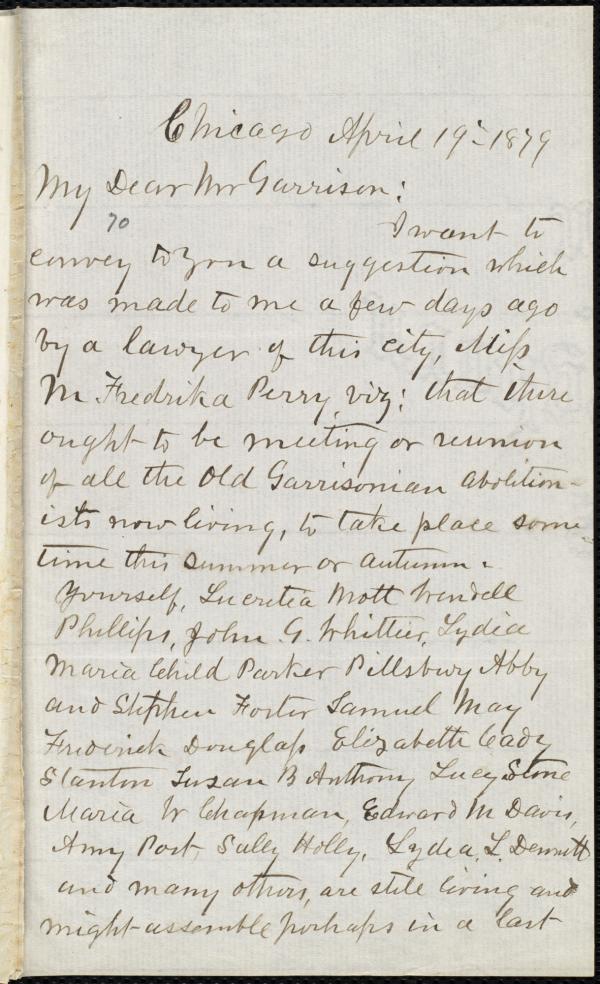 Chicago April 19th 1879
My Dear Mr Garrison:
70
I want to
convey to you a suggestion which
was made to me a few days ago
by a lawyer of this city, Miss
M Fredrika Perry, viz: that there
ought to be meeting or reunion
of all the Old Garrisonian abolition-
ists now living, to take place some-
time this summer or autumn.
Yourself, Lucretia Mott Wendell
Phillips, John G. Whittier, Lydia
Maria Child Parker Pillsbury Abby
and Stephen Foster Samuel May
Frederick Douglass Elizabeth Cady
Stanton Susan B Anthony Lucy Stone
Maria W Chapman, Edward M Davis,
Amy Post, Sally Holly, Lydia L. Dennett
and many others, are still living and
might assemble perhaps in a last